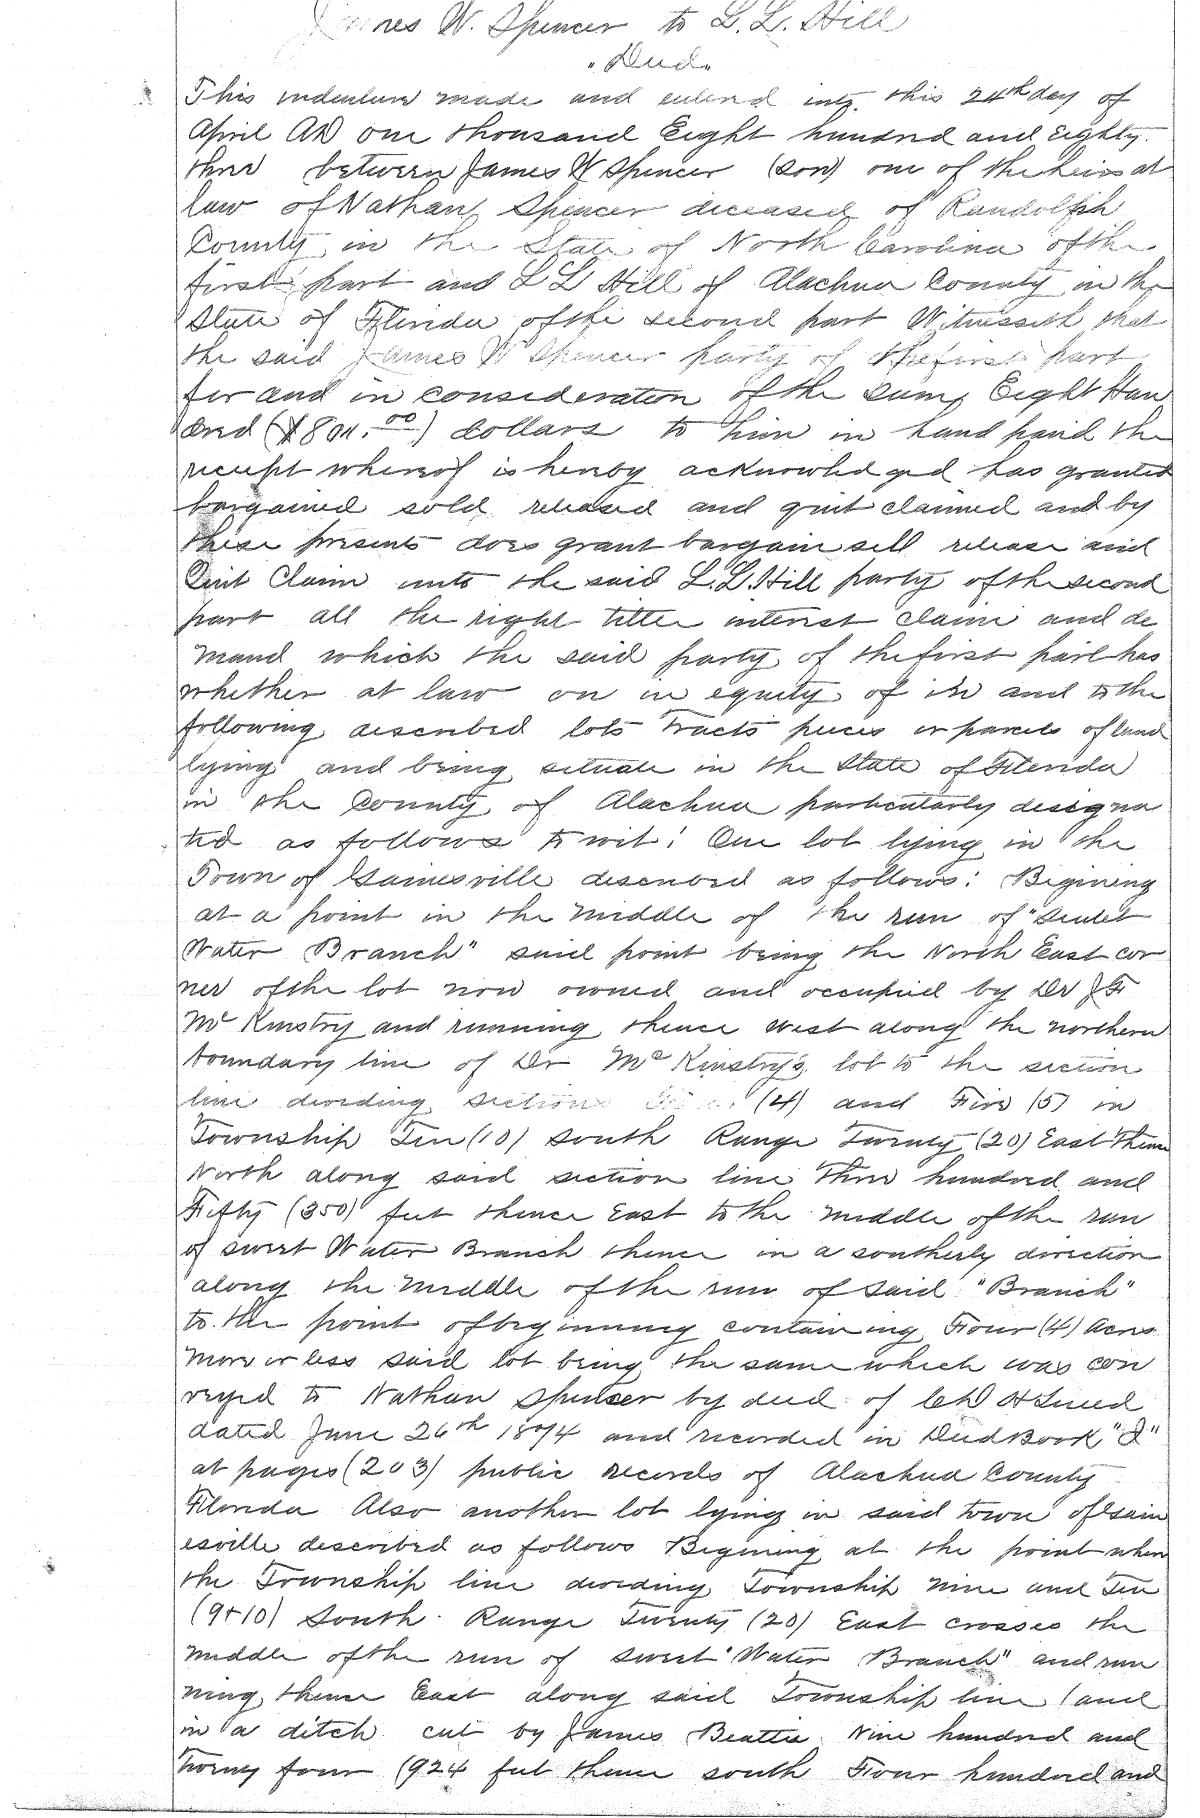 James W. Spencer to L. L. Hill
"Deed"
This indenture made and entered into this 24th day of
April AD one thousand Eight hundred and Eighty
three between James W Spencer (son) one of the heirs at
law of Nathan Spencer deceased of Randolph
County in the State of North Carolina of the
first part and L L Hill of Alachua County in the
State of Florida of the second part Witnesseth that
the said James W Spencer party of the first part
for and in consideration of the sum Eight Hun
dred ($800.00) dollars to him in hand paid the
receipt whereof is hereby acknowledged has granted
bargained sold released and quit claimed and by
these presents does grant bargain sell release and
Quit Claim unto the said L. L. Hill party of the second
part all the right tittle interest claim and de
mand which the said party of the first part has
whether at law or in equity of in and to the
following described lots tracts pieces or parcels of land
lying and being situate in the State of Florida
in the County of Alachua particularly designa
ted as follows to wit: One lot lying in the
Town of Gainesville described as follows: Begining
at a point in the middle of the run of "Sweet
Water Branch" said point being the North East cor
ner of the lot now owned and occupied by Dr J F
McKinstry and running thence west along the northern
boundary line of Dr McKinstry's lot to the section
line dividing sections (4) and Five (5) in
Township Ten (10) South Range Twenty (20) East thence
North along said section line three hundred and
Fifty (350) feet thence East to the middle of the run
of sweet Water Branch thence in a southerly direction
along the middle of the run of said "Branch"
to the point of beginning containing Four (4) Acres
more or less said lot being the same which was con
veyed to Nathan Spencer by deed of
dated June 26th 1874 and recorded in Deed Book
at pages (203) public records of Alachua County
Florida Also another lot lying in said town of Gain
esville described as follows Begining at the point where
the Township line dividing Township nine and Ten
(9+10) South Range Twenty (20) East crosses the
middle of the run of sweet "Water Branch" and run
ning thence East along said Township line (and
in a ditch cut by James Beattie Nine hundred and
Twenty four (924 feet thence south Four hundred and